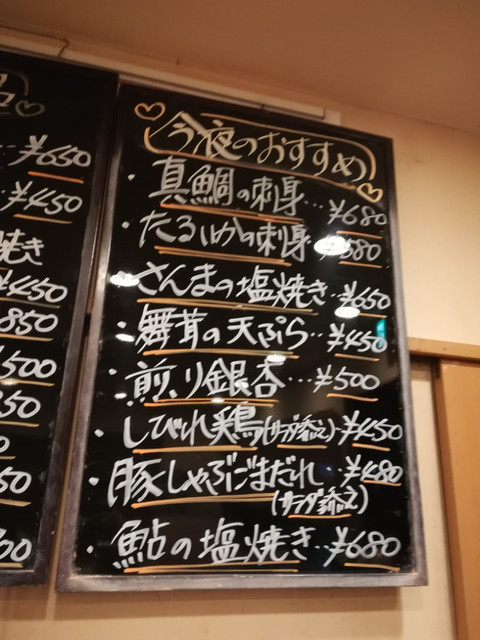 ¥650
¥450
焼き
¥450
850
500
50
50
00
今夜のおすすめ
・真鯛の刺身…¥680
・たるいかの刺身 580
・さんまの塩焼き…¥650
・舞茸の天ぷら…¥450
・煎り銀杏…¥500
・しびれ鶏(サラダ添え)¥450
・豚しゃぶごまだれ…¥480
(サラダ添え)
・鮎の塩焼き…¥680